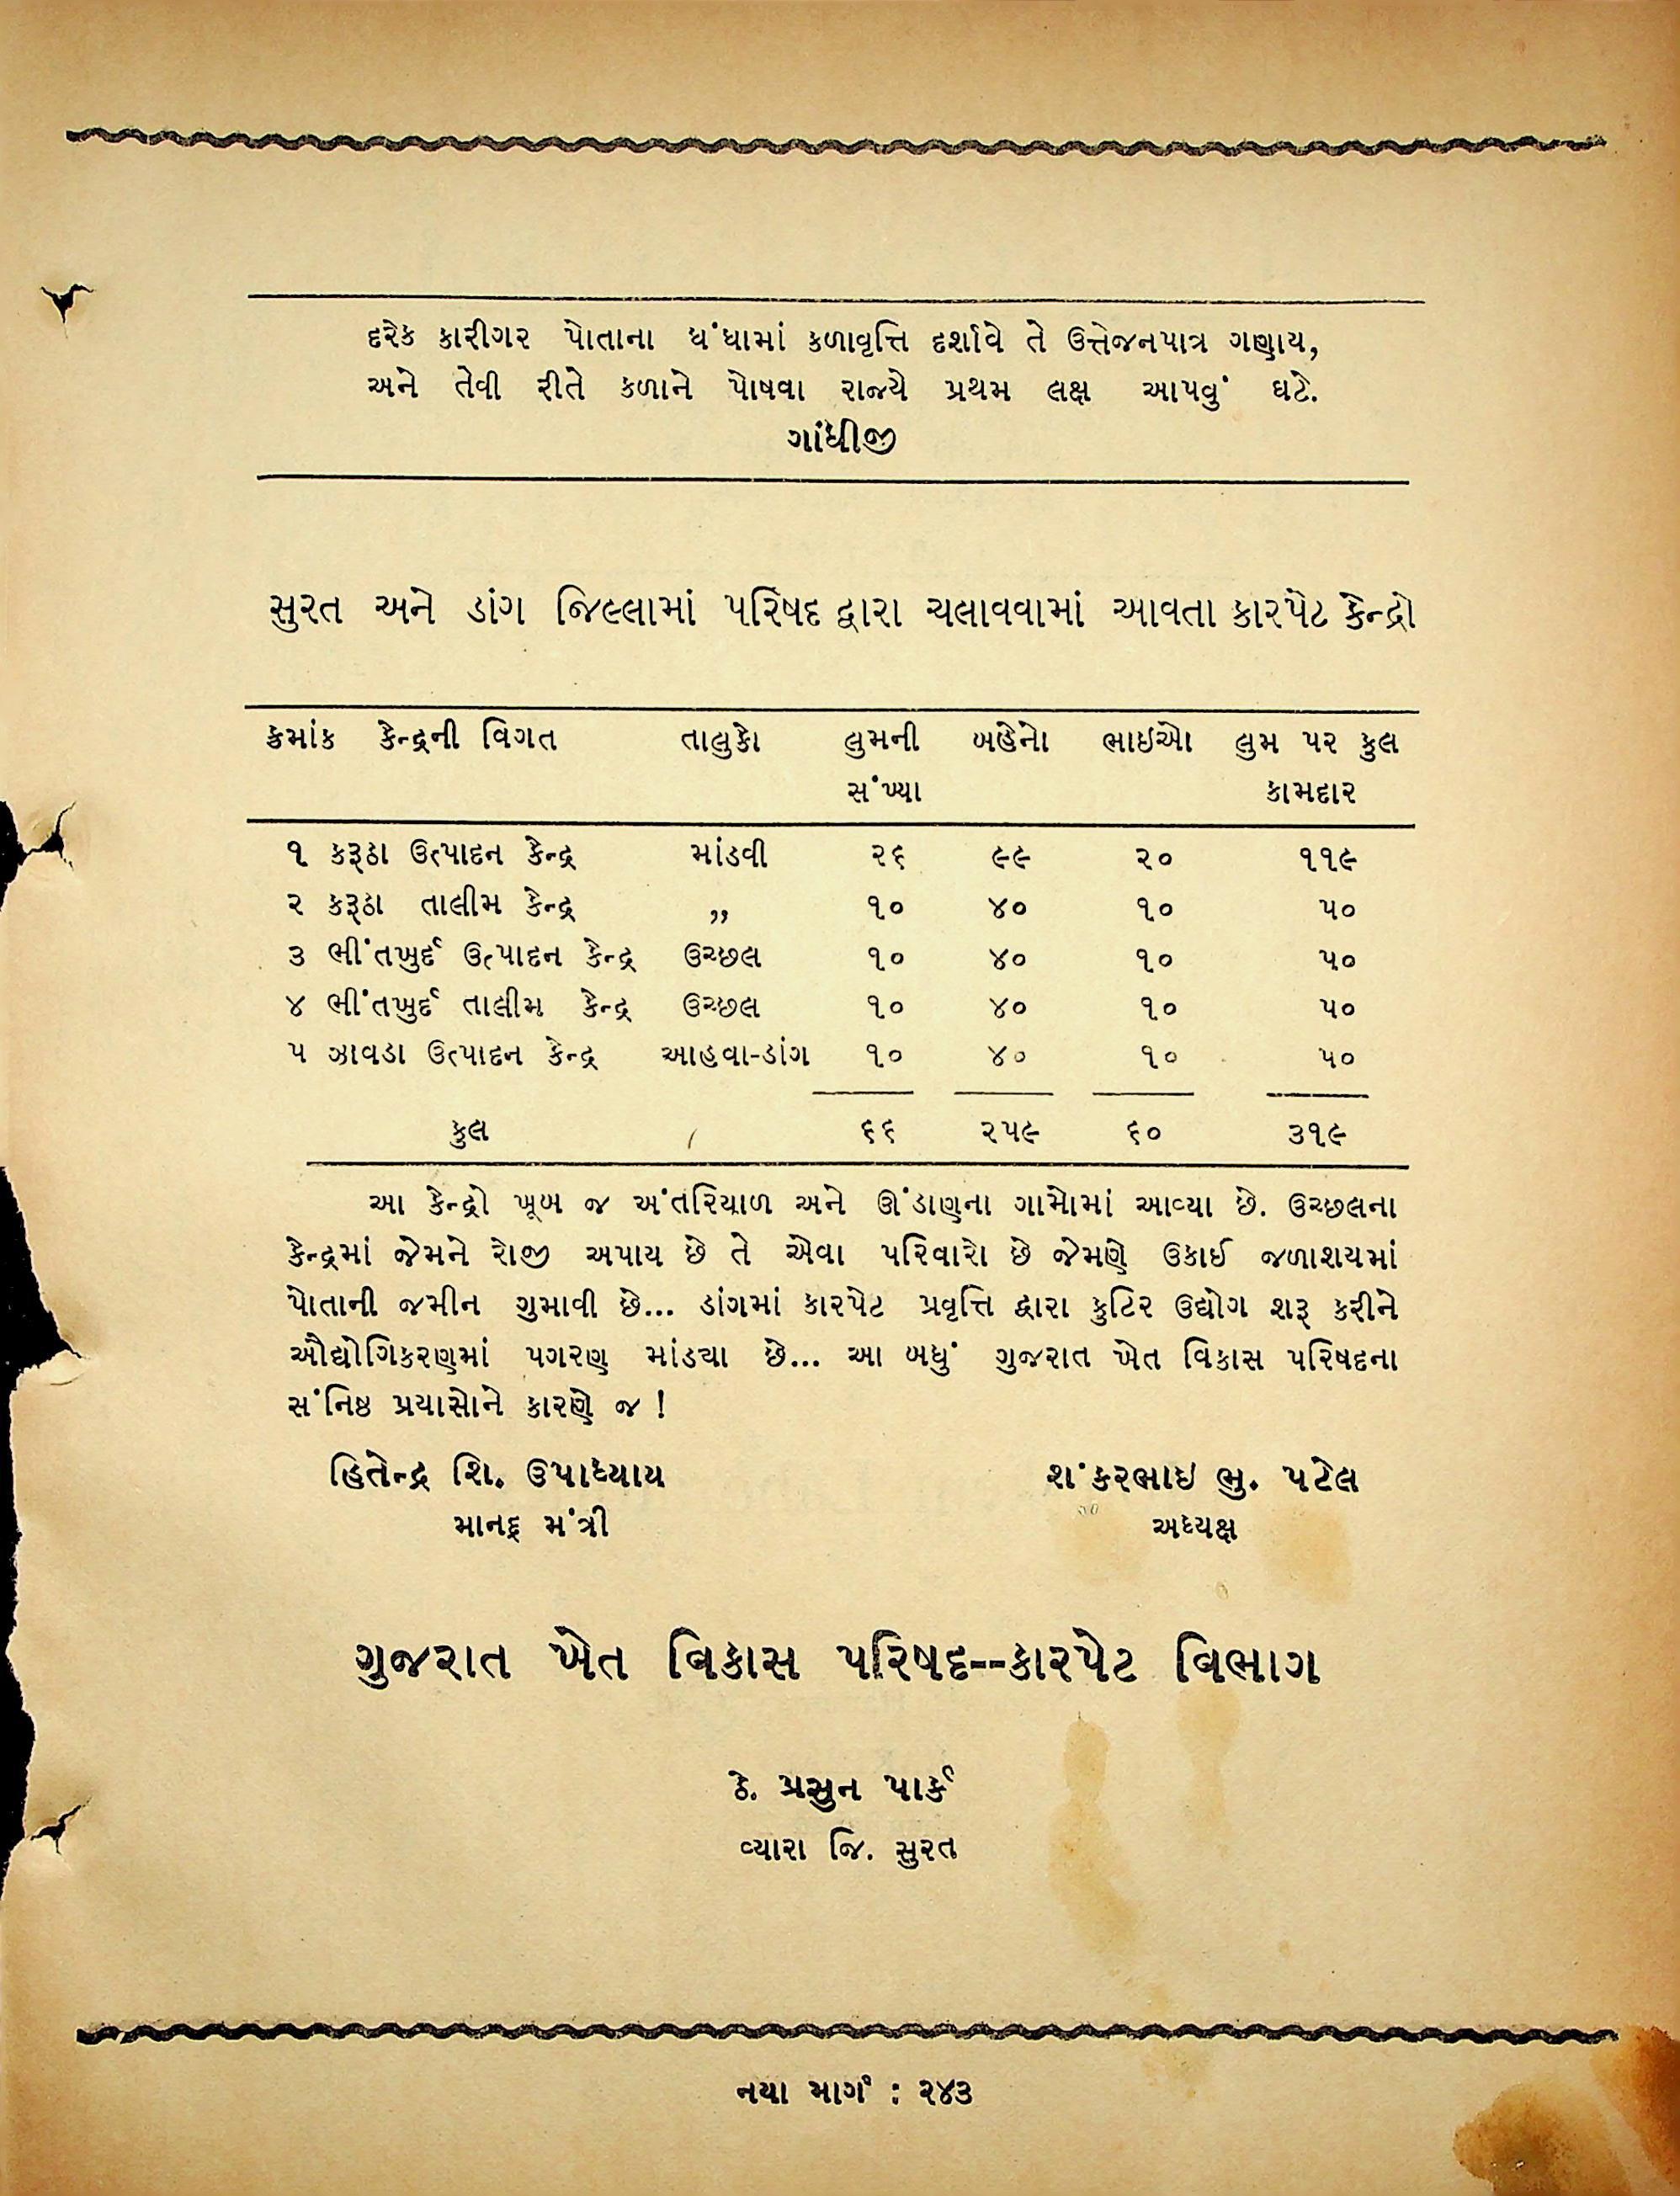 દરેક કારીગર પોતાના ધંધામાં કળાવૃત્તિ દર્શાવે તે ઉત્તેજનપાત્ર ગણાય,
અને તેવી રીતે કળાને પોષવા રાજ્યે પ્રથમ લક્ષ આપવું ઘટે.
ગાંધીજી
સુરત અને ડાંગ જિલ્લામાં પરિષદ દ્વારા ચલાવવામાં આવતા કારપેટ કેન્દ્રો
ક્રમાંક કેન્દ્રની વિગત તાલુકો લુમની બહેનો ભાઇઓ લુમ પર કુલ
સંખ્યા કામદાર
૧ કરૂઠા ઉત્પાદન કેન્દ્ર માંડવી ૨૬ ૯૯ ૨૦ ૧૧૯
૨ કરૂઠા તાલીમ કેન્દ્ર ,, ૧૦ ૪૦ ૧૦ ૫૦
૩ ભીંતખુર્દ ઉત્પાદન કેન્દ્ર ઉચ્છલ ૧૦ ૪૦ ૧૦ ૫૦
૪ ભીંતખુર્દ તાલીમ કેન્દ્ર ઉચ્છલ ૧૦ ૪૦ ૧૦ ૫૦
૫ ઝાવડા ઉત્પાદન કેન્દ્ર આહવા-ડાંગ ૧૦ ૪૦ ૧૦ ૫૦
કુલ ૬૬ ૨૫૯ ૬૦ ૩૧૯
આ કેન્દ્રો ખૂબ જ અંતરિયાળ અને ઊંડાણના ગામોમાં આવ્યા છે. ઉચ્છલના
કેન્દ્રમાં જેમને રોજી અપાય છે તે એવા પરિવારો છે જેમણે ઉકાઈ જળાશયમાં
પોતાની જમીન ગુમાવી છે... ડાંગમાં કારપેટ પ્રવૃત્તિ દ્વારા કુટિર ઉદ્યોગ શરૂ કરીને
ઔદ્યોગિકરણમાં પગરણ માંડ્યા છે... આ બધું ગુજરાત ખેત વિકાસ પરિષદના
સંનિષ્ઠ પ્રયાસોને કારણે જ !
હિતેન્દ્ર શિ. ઉપાધ્યાય શંકરભાઇ ભુ. પટેલ
માનદ્ મંત્રી અધ્યક્ષ
ગુજરાત ખેત વિકાસ પરિષદ--કારપેટ વિભાગ
ઠે. પ્રસુન પાર્ક
વ્યારા જિ. સુરત
નયા માર્ગ : ૨૪૩